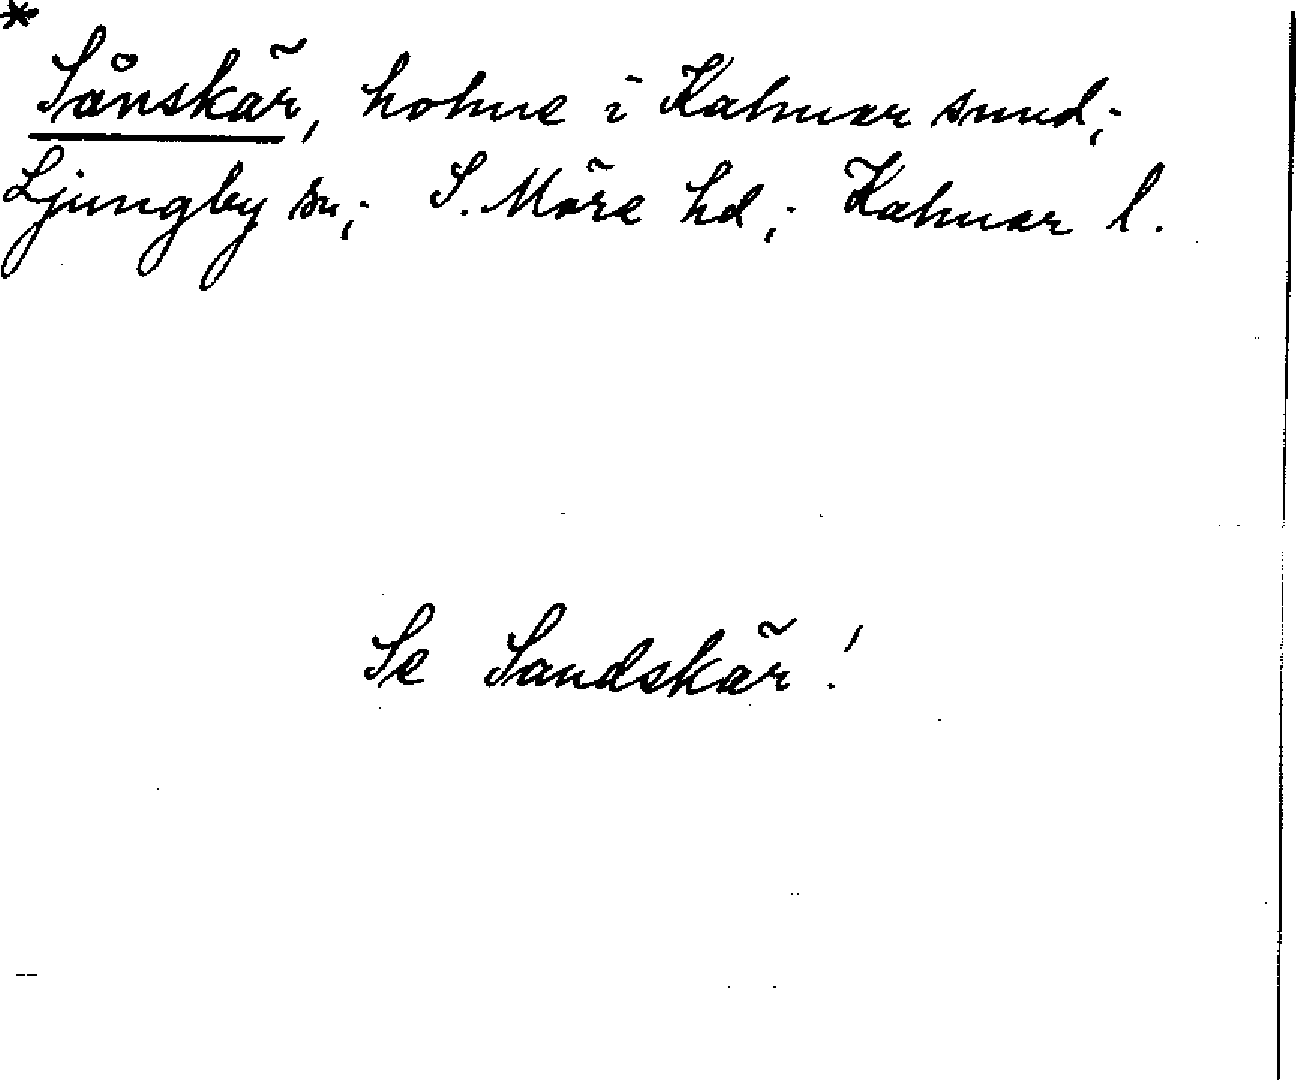 *
Sånskär, holme i Kalmar sund;
Ljungby sn; S. Möre hd; Kalmar l.
Se Sandskär!